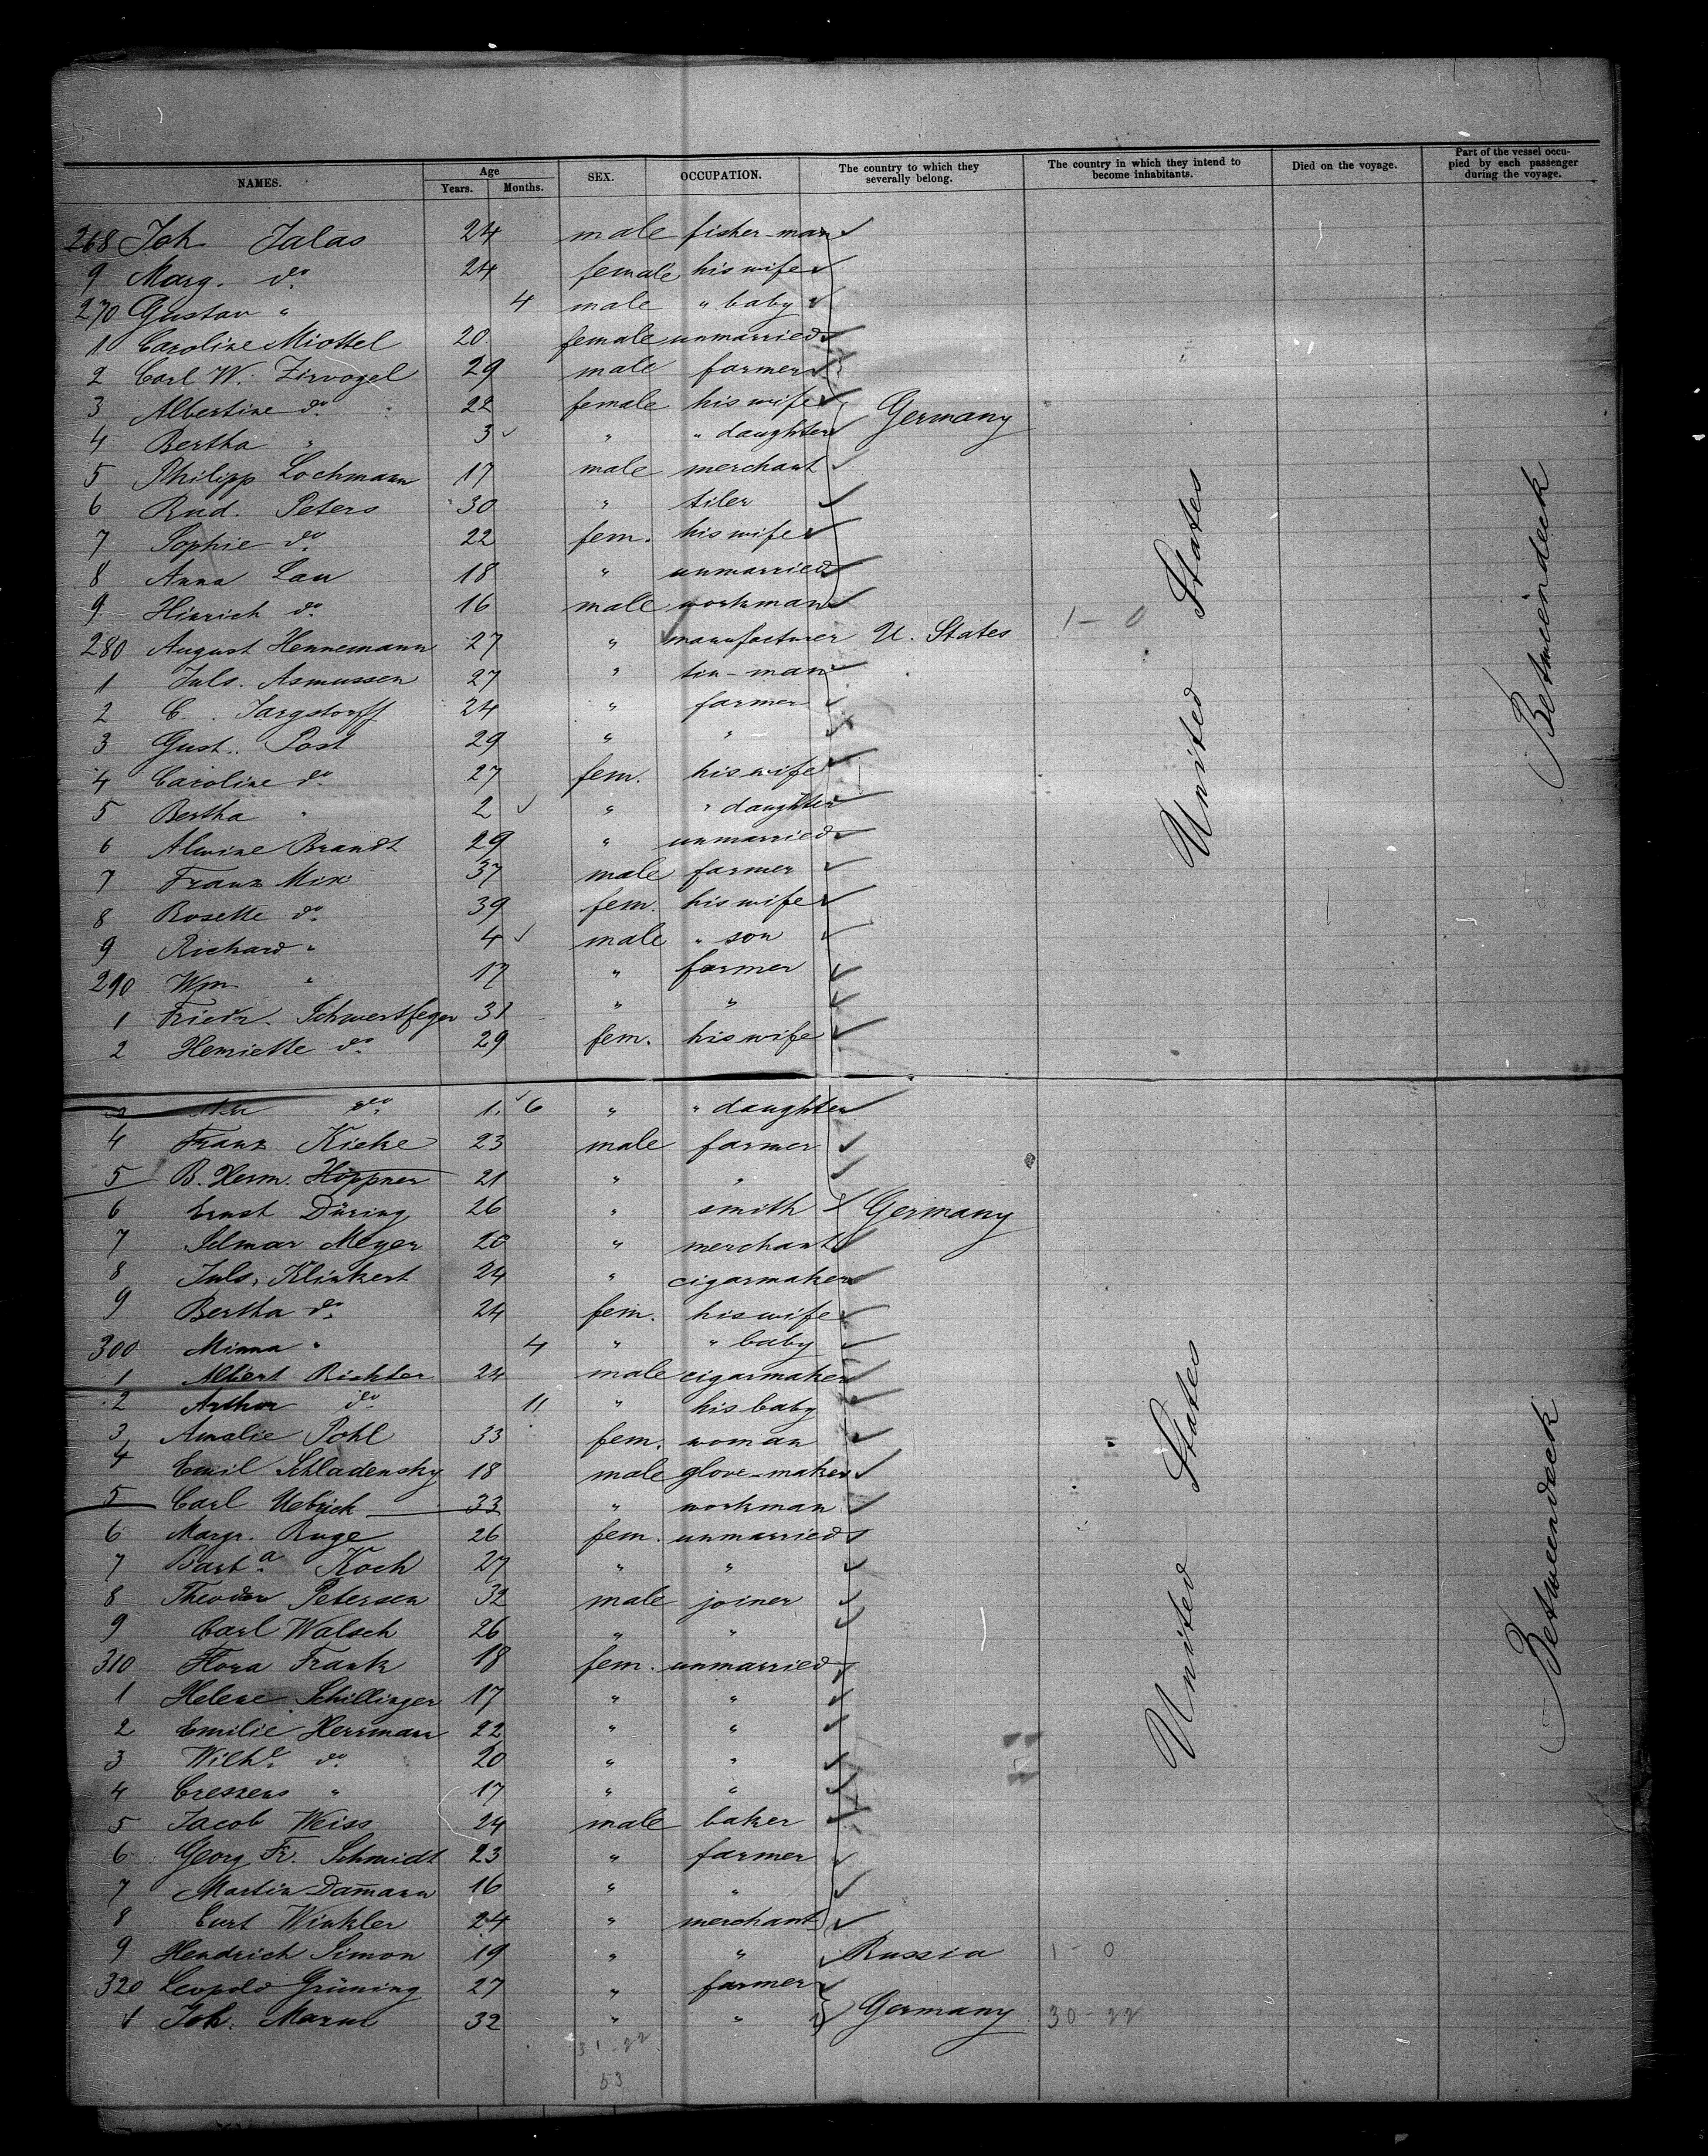 NAMES. Age Years. Months. SEX. OCCUPATION. The country to which they severally belong. The country in which they intend to become inhabitants. Died on the voyage. Part of the vessel occupied by each passenger during the voyage.
268 Joh Jalas 24 male fisher-man
9 Marg. do 24 female his wife
270 Gustav " 4 male " baby
1 Caroline Miottel 20 female unmarried
2 Carl W. Zirvogel 29 male farmer
3 Albertine do 22 female his wife Germany
4 Bertha " 3 " " daughter
5 Philipp Lochmann 17 male merchant
6 Rud. Peters 30 " tiler
7 Sophie do 22 fem. his wife
8 Anna Lau 18 " unmarried
9 Hinrich do 16 male workman
280 August Hennemann 27 " manufacturer U. States 1-0 United States Betweendeck
1 Juls. Asmussen 27 " tin-man
2 C. Jargstorff 24 " farmer
3 Gust. Post 29 " "
4 Caroline do 27 fem. his wife
5 Bertha " 2 " " daughter
6 Alwine Brandt 29 " unmarried
7 Franz Mix 37 male farmer
8 Rosette do 39 fem. his wife
9 Richard " 4 male " son
290 Wm " 17 " farmer
1 Friedr. Schwertfeger 31 " "
2 Henriette do 29 fem. his wife
do 1 6 " " daughter
4 Franz Kieke 23 male farmer
5 B. Herm. Höppner 21 " "
6 Ernst Düring 26 " smith Germany
7 Selmar Meyer 20 " merchant
8 Juls. Klinkert 24 " cigarmaker
9 Bertha do 24 fem. his wife
300 Minna " 4 " " baby
1 Albert Richter 24 male cigarmaker
2 Arthur do 11 " his baby
3 Amalie Pohl 33 fem. woman
4 Emil Schladensky 18 male glove-maker
5 Carl Uebrick 33 " workman
6 Margr. Ruge 26 fem. unmarried
7 Barba. Koch 27 " "
8 Theodor Petersen 32 male joiner United States Betweendeck
9 Carl Walsch 26 " "
310 Flora Frank 18 fem. unmarried
1 Helene Schillinger 17 " "
2 Emilie Herrmann 22 " "
3 Wilhe. do 20 " "
4 Creszens " 17 " "
5 Jacob Weiss 24 male baker
6 Georg Fr. Schmidt 23 " farmer
7 Martin Dam̄ann 16 " "
8 Curt Winkler 24 " merchant
9 Hendrich Simon 19 " " Russia 1-0
320 Leopold Grüning 27 " farmer
1 Joh. 32 " " Germany 30-22
31-22
53